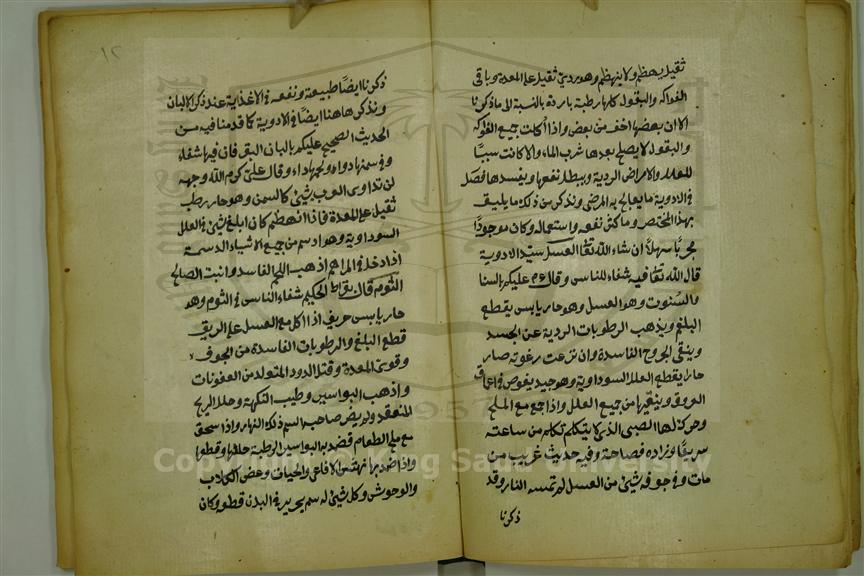 ثقيل يهظم ولا ينهظم وهو ردي ثقيل على المعدة وباقي
الفواكه والبقول كلها رطبة باردة بالنسبة الى ما ذكرنا
الا ان بعضها اخف من بعض واذا أكلت جميع الفواكه
والبقول لا يصلح بعدها شرب الماء والا كانت سببا
للعلل والامراض الردية ويبطل نفعها ويفسدها فصل
في الادوية ما يعالج به المرضى ونذكر من ذلك ما يليق
بهذا المختصر وما كثر نفعه واستعماله وكان موجودًا
مجربًا سهلًا ان شاء الله تعا العسل سيد الادوية
قال الله تعا فيه شفاء للناس وقال عليكم بالسنا
والسنوت وهو العسل وهو حار يابس يقطع
البلغم ويذهب الرطوبات الردية عن الجسد
وينقي الجروح الفاسدة وان نزعت رغوته صار
حارا يقطع العلل السوداوية وهو جيد يغوص في اعماق
العروق وينقيها من جميع العلل واذا جمع مع الملح
وحرك لها الصبي الذي لا يتكلم تكلم من ساعته
سريعًا وزاده فصاحة وفيه حديث غريب من
مات وفي جوفه شيئ من العسل لم تمسه النار وقد
ذكرنا
١٢
ذكرنا ايضًا طبيعته ونفعه في الاغذية عند ذكر الالبان
ونذكرها هنا ايضًا في الادوية كما قدمنا فيه من
الحديث الصحيح عليكم بالبان البقر فان فيها شفاء
وفي سمنها دواء ولحمها داء وقال علي كرم الله وجهه
لن تداوى العرب بشيئ كالسمن وهو حار رطب
ثقيل على المعدة فاذا انهظم كان ابلغ شيئ في العلل
السوداوية وهو ادسم من جميع الاشياء الدسمة
اذا دخل في المراهم اذهب اللحم الفاسد وانبت الصالح
الثوم قال بقراط الحكيم شفاء الناس في الثوم وهو
حار يابس حريف اذا اكل مع العسل على الريق
قطع البلغم والرطوبات الفاسدة من الجوف
وقوى المعدة وقتل الدود المتولد من العفونات
واذهب البواسير وطيب النكهة وحلل الريح
المنعقد ولم يضر صاحبه السم ذلك النهار واذا سحق
مع ملح الطعام وضمد به البواسير الرطبة حللها وقطعها
واذا ضمد بها نهشة الافاعي والحيات وعض الكلاب
والوحوش وكل شيئ له سم يجري في البدن قطعه وكان
Copyright © King Saud University
1957